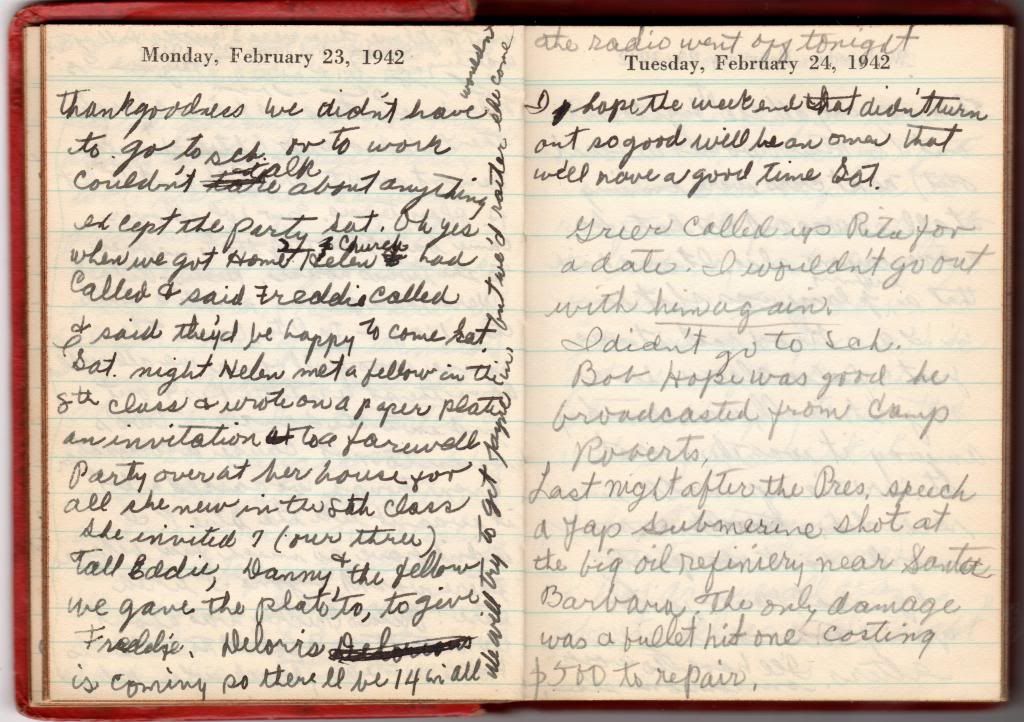 Monday, February 23, 1942
thankgoodness we didn't have
to go to sch. or to work
couldn't talk about anything
except the party Sat. Oh yes
when we got Home St church Helen had
Called & said Freddie called
& said they'd be happy to come Sat.
Sat. night Helen met a fellow in the
8th class & wrote on a paper plate
an invitation to a farewell
Party over at her house for
all she new in the 8th Class
She invited 7 (our three)
Tall Eddie, Danny & the fellow
we gave the plate to, to give
Freddie. Deloris
is coming so there'll be 14 in all
We will try to get Jayne in, but we'd rather she come
wouldn
the radio went off tonight
Tuesday, February 24, 1942
I hope the weekend that didn't turn
out so good will be an omen that
we'll have a good time Sat.
Grier called up Rita for
a date. I wouldn't go out
with him again.
I didn't go to Sch.
Bob Hope was good he
broadcasted from Camp
Roberts,
Last night after the Pres. speech
a Jap Submerine shot at
the big oil refiniery near Santa
Barbara. The only damage
was a bullet hit one costing
$500 to repair.